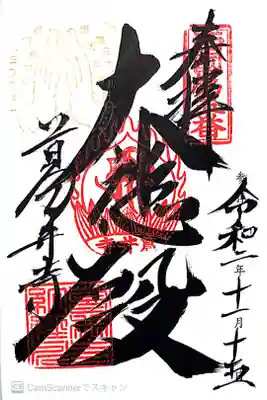 奉拝
令和二年十一月十五日
大悲殿
葛井寺
CS CamScannerでスキャン